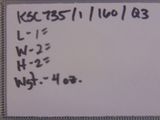 KSC735/1/160/Q3
L-1=
W-2=
H-2=
Wgt.-4oz.